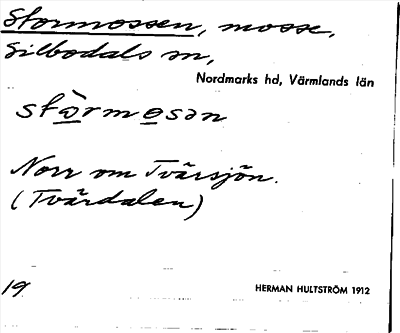 Stormossen, mosse,
Silbodals sn,
Nordmarks hd, Värmlands län
stòrmosən
Norr om Tvärsjön.
(Tvärdalen)
19
HERMAN HULTSTRÖM 1912